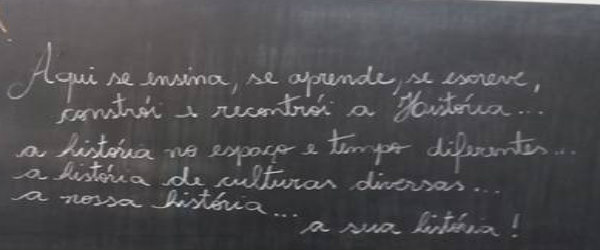 Aqui se ensina, se aprende, se escreve,
constrói e recontrói a História...
a história no espaço e tempo diferentes...
a história de culturas diversas...
a nossa história...
a sua história!